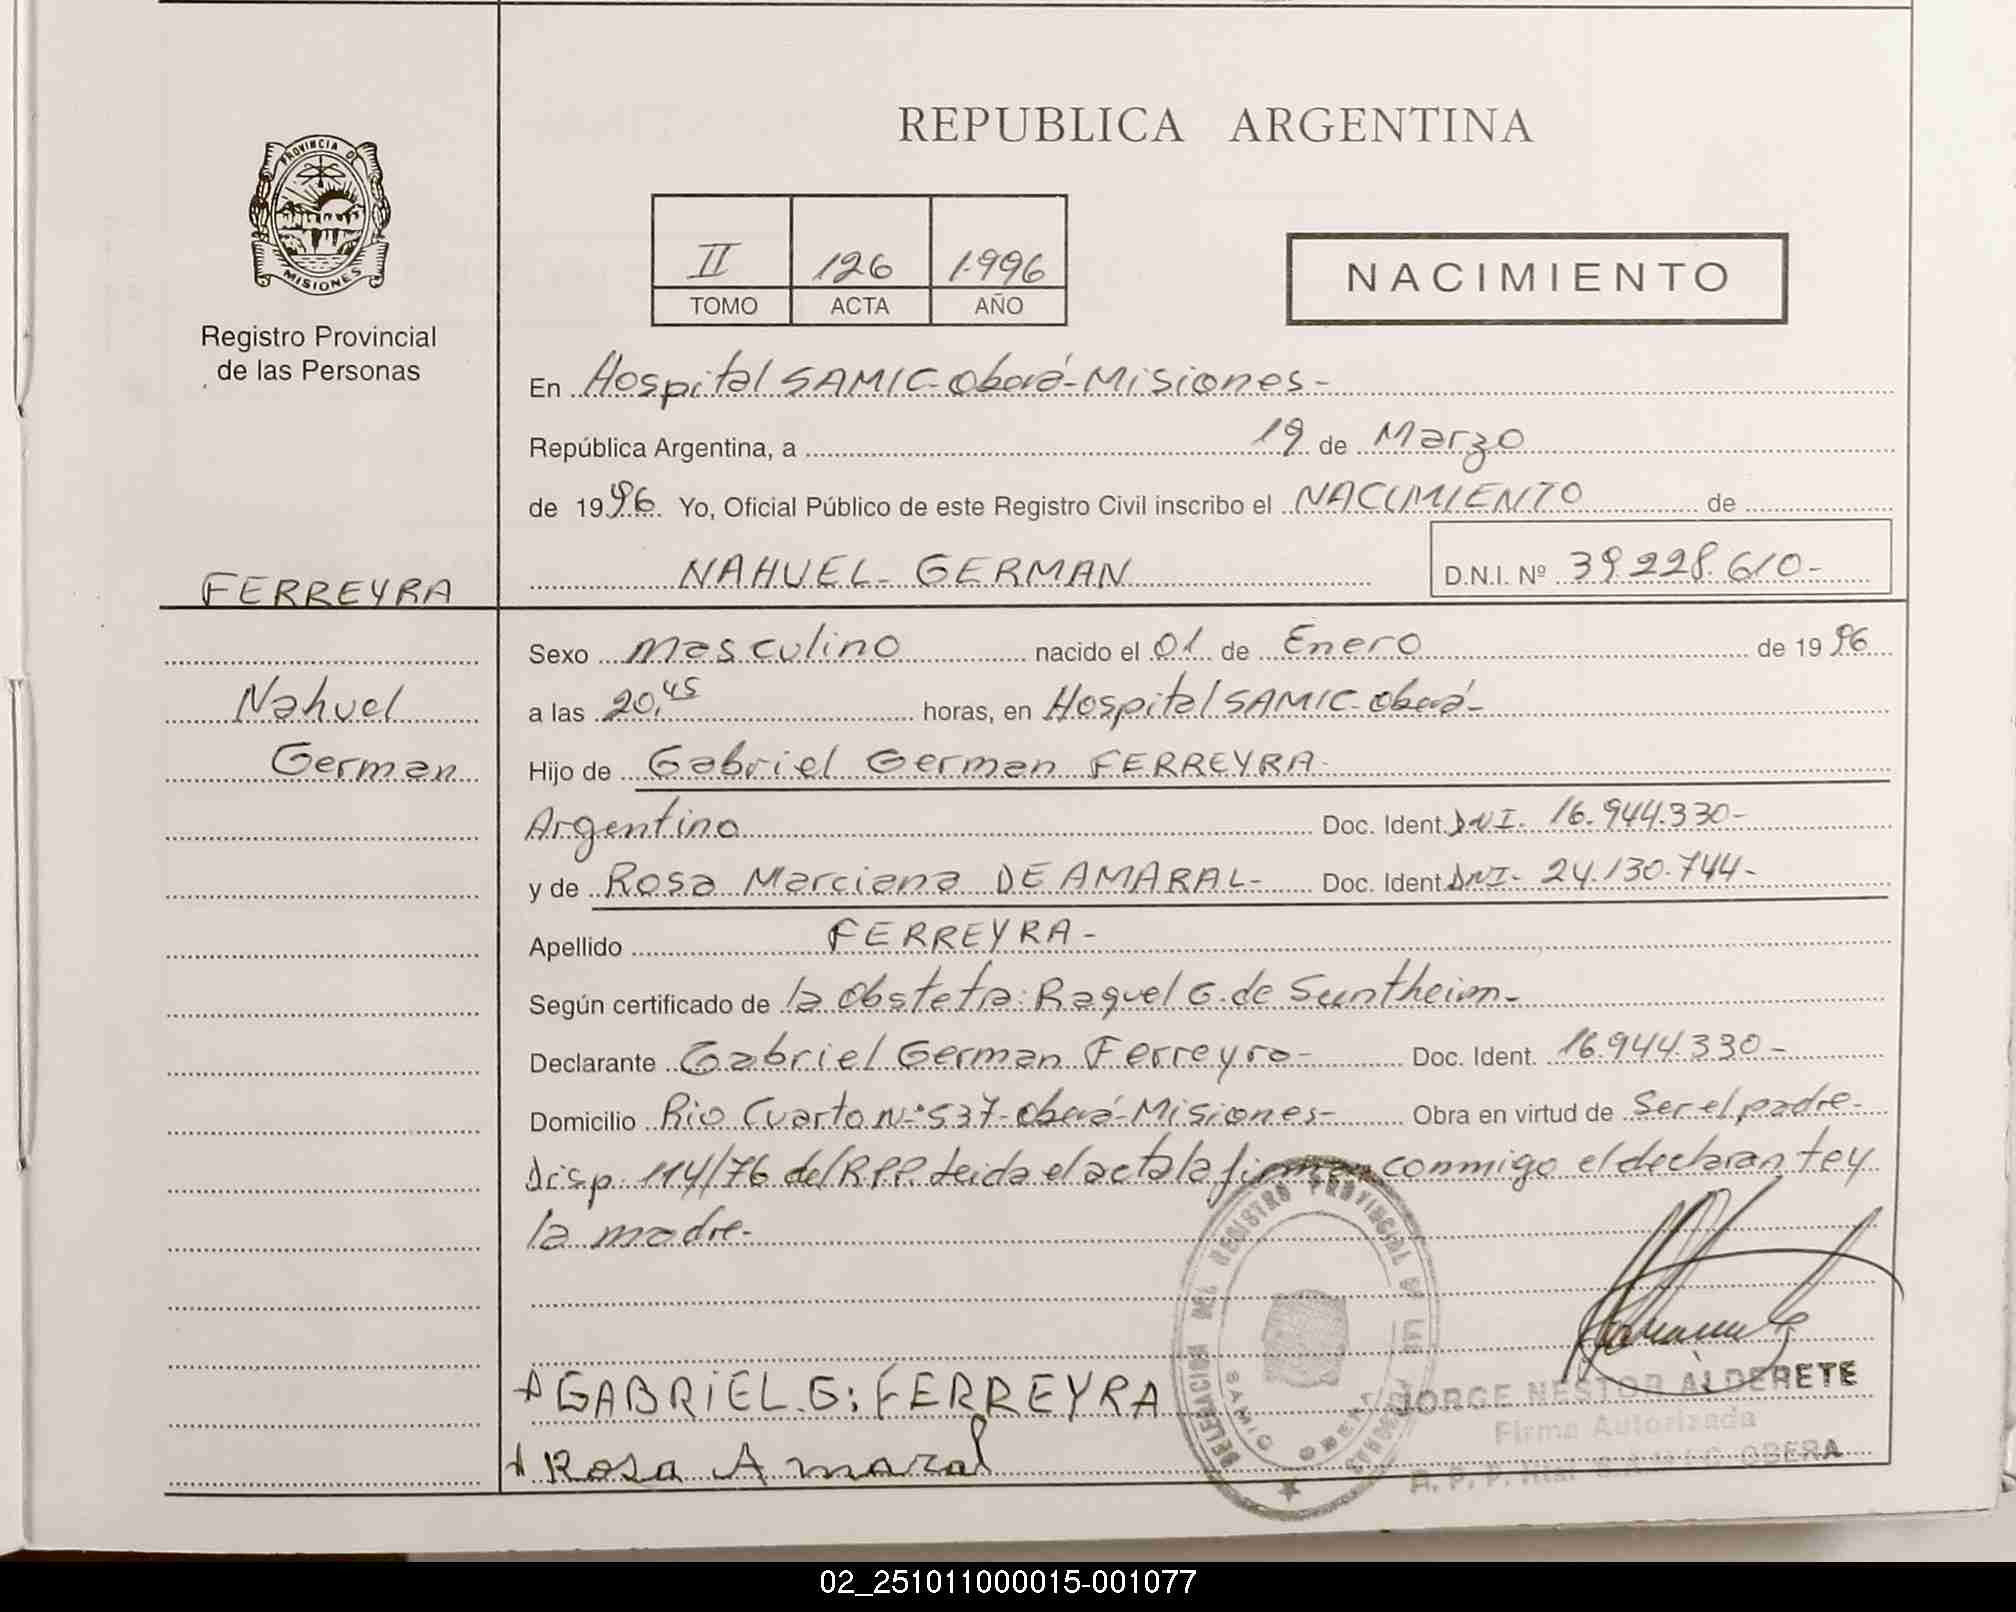 REPUBLICA ARGENTINA
PROVINCIA DE
MISIONES
Registro Provincial
de las Personas
II 126 1.996
TOMO ACTA AÑO
NACIMIENTO
En Hospital SAMIC-Oberá-Misiones-
República Argentina, a 19 de Marzo
de 1996. Yo, Oficial Público de este Registro Civil inscribo el NACIMIENTO de
FERREYRA
NAHUEL- GERMAN D.N.I. Nº 39.228.610-
Nahuel
German
Sexo Masculino nacido el 01 de Enero de 1996
a las 20,45 horas, en Hospital SAMIC-Oberá-
Hijo de Gabriel German FERREYRA-
Argentino Doc. Ident. DNI. 16.944.330-
y de Rosa Marciana DE AMARAL- Doc. Ident. DNI- 24.130.744-
Apellido FERREYRA-
Según certificado de la Obsteta: Raquel G. de Suntheim-
Declarante Gabriel German Ferreyra- Doc. Ident. 16.944.330-
Domicilio Rio Cuarto N°537-Oberá-Misiones- Obra en virtud de Ser el padre-
Disp. 114/76 del R.P.P. Leida el acta la firman conmigo el declarante y
la madre-
DELEGACION DEL REGISTRO PROVINCIAL DE LAS PERSONAS
SAMIC OBERA
GABRIEL.G: FERREYRA
Rosa Amaral
JORGE NESTOR ALDERETE
Firma Autorizada
R. P. P. Htal S.A.M.I.C. OBERA
02_251011000015-001077